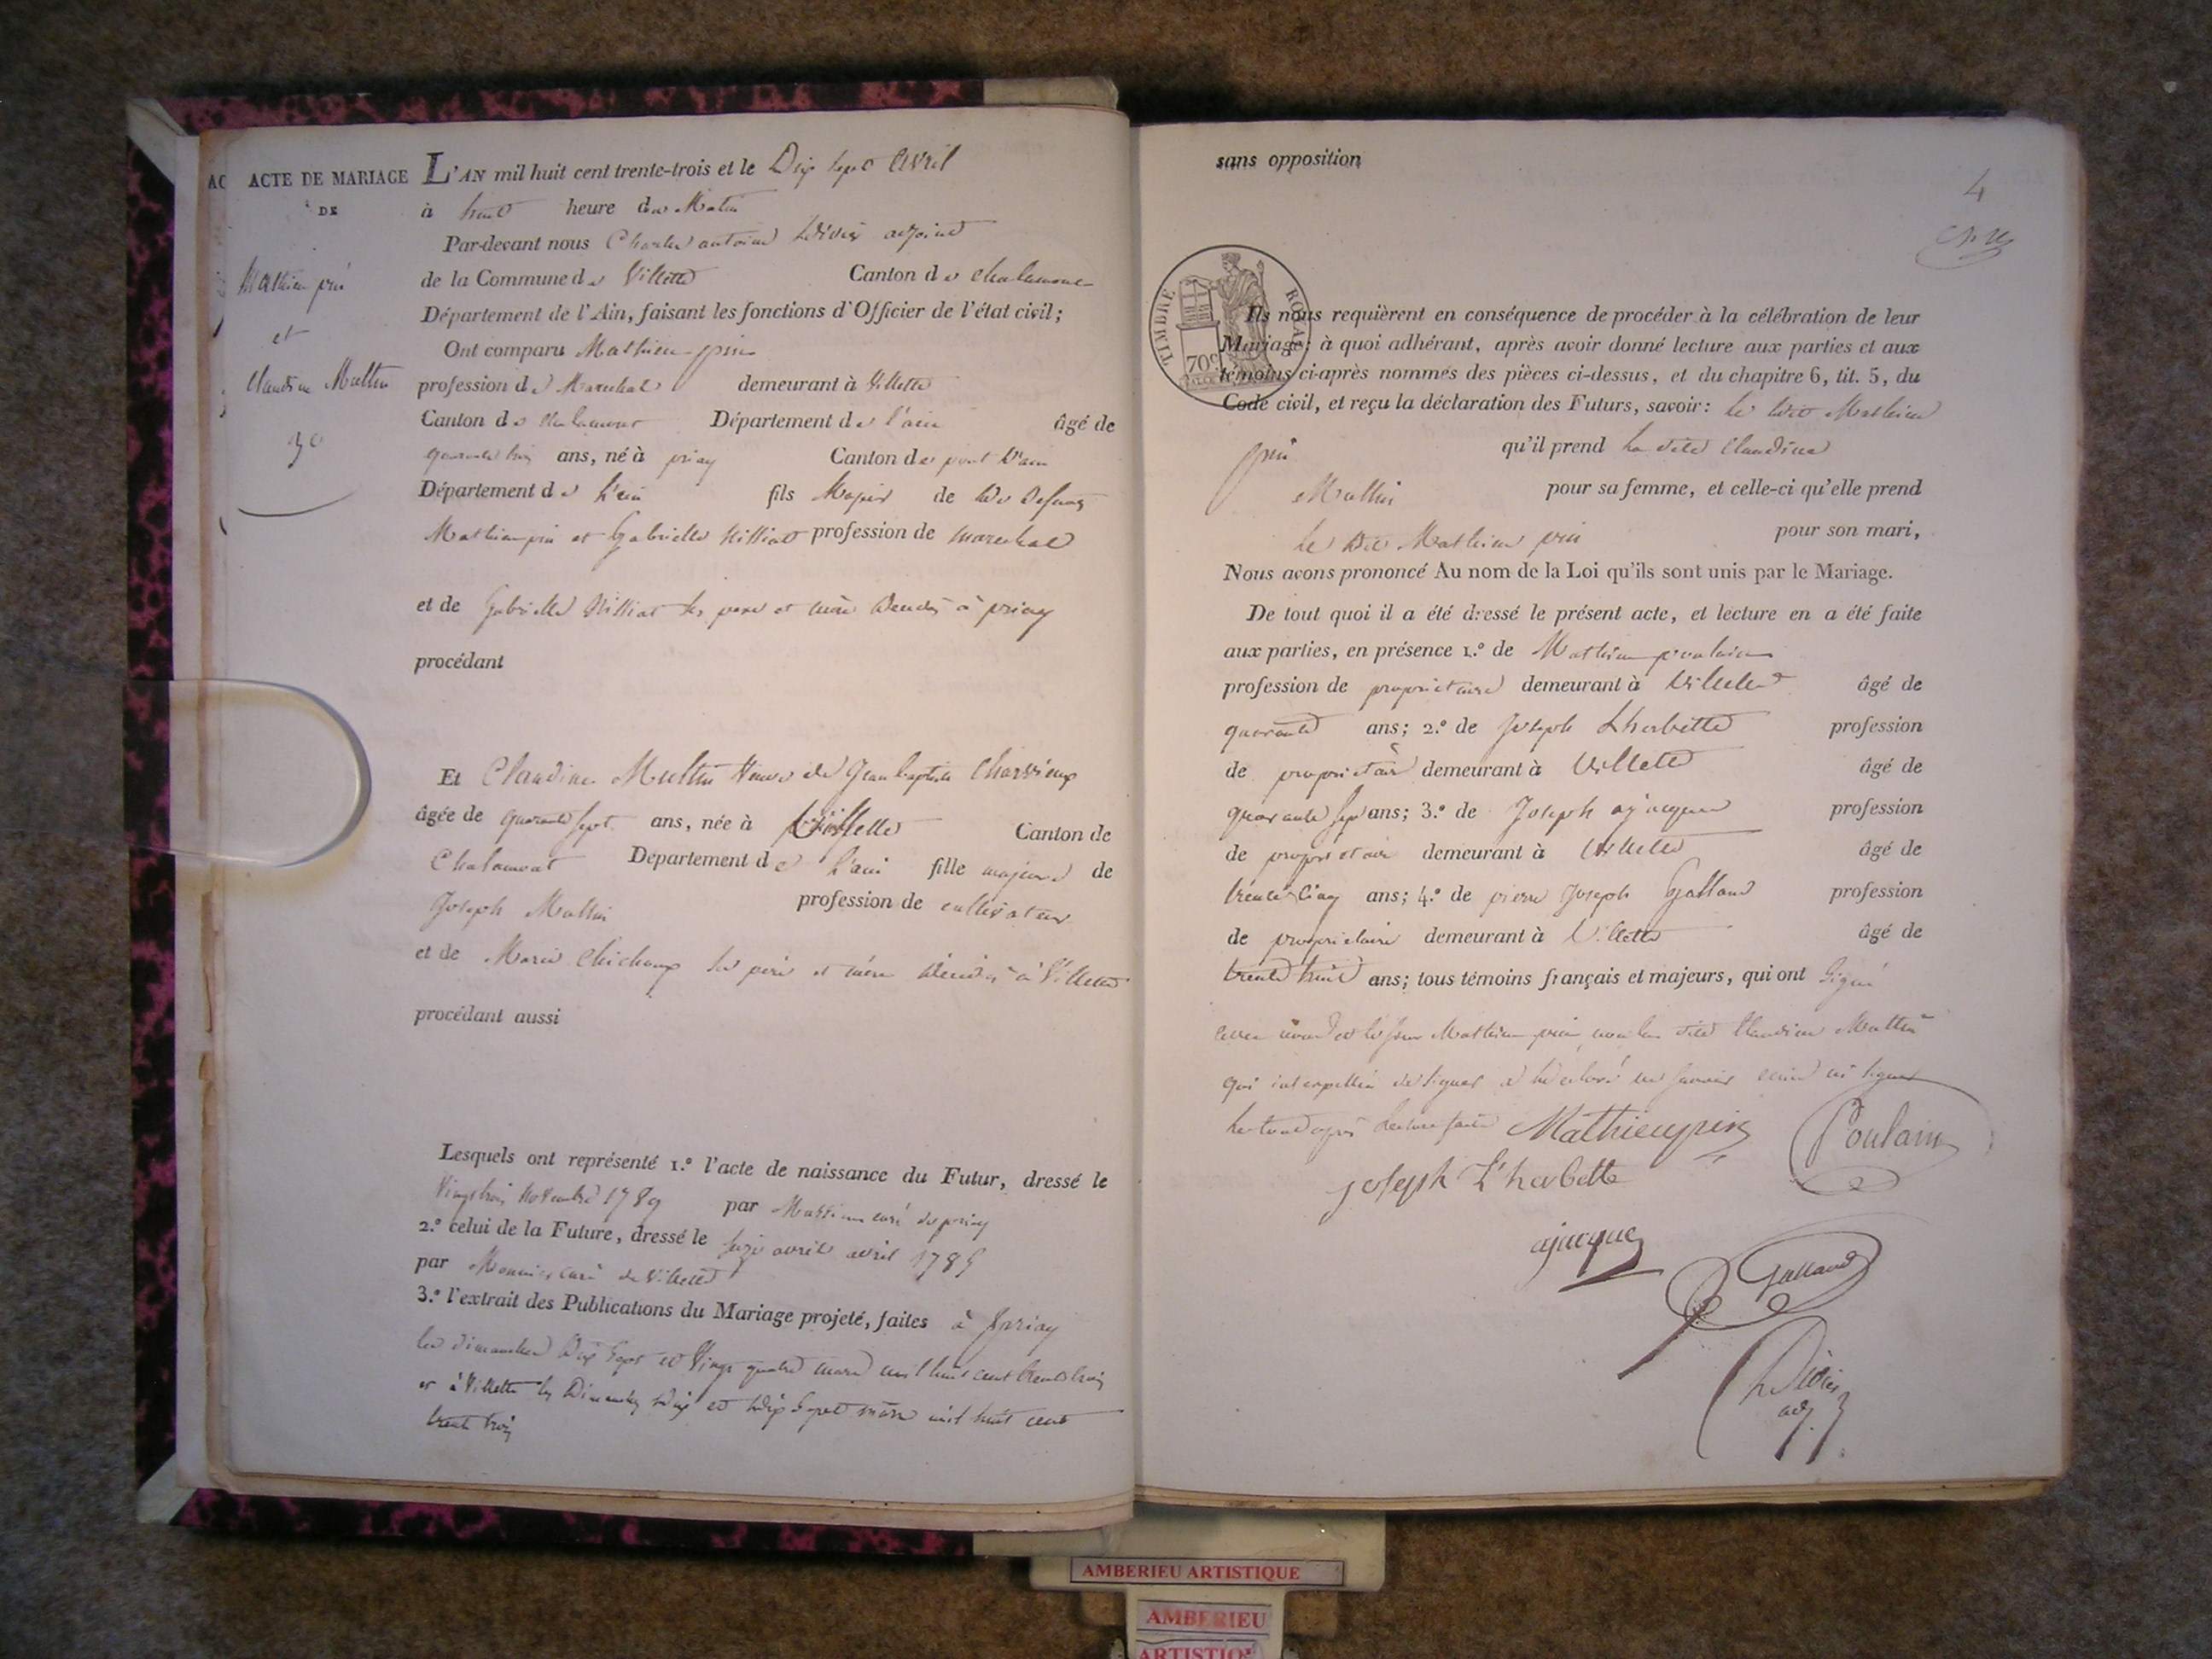 ACTE DE MARIAGE
DE
Mathieu pin
et
Claudine Muttin
L'AN mil huit cent trente-trois et le Dix Sept Avril
à huit heure du Matin
Par-devant nous Charles antoine Didier adjoint
de la Commune de Villette Canton de Chalamont
Département de l'Ain, faisant les fonctions d'Officier de l'état civil;
Ont comparu Mathieu pin
profession de Marechal demeurant à Villette
Canton de Chalamont Département de l'ain âgé de
quarante trois ans, né à priay Canton de pont d'ain
Département de L'ain fils Majeur de defunt
Mathieu pin et Gabrielle profession de marechal
et de Gabrielle ses pere et mère decedés à priay
procédant
Et Claudine Muttin Veuve de Jean baptiste
âgée de quarante sept ans, née à Villette Canton de
Chalamont Département de L'ain fille majeure de
Joseph Muttin profession de cultivateur
et de Marie Chichoux ses père et mère décédés à Villette
procédant aussi
Lesquels ont représenté 1.º l'acte de naissance du Futur, dressé le
Vingt trois Novembre 1789 par curé de priay
2.º celui de la Future, dressé le seize avril avril 178
par Monnier curé de Villette
3.º l'extrait des Publications du Mariage projeté, faites à priay
les dimanches Dix Sept et Vingt quatre mars mil huit cent trente trois
et à Villette les Dimanches Dix et Dix Sept mars mil huit cent
trente trois
sans opposition
4
TIMBRE ROYAL
70c
Ils nous requièrent en conséquence de procéder à la célébration de leur
Mariage; à quoi adhérant, après avoir donné lecture aux parties et aux
témoins ci-après nommés des pièces ci-dessus, et du chapitre 6, tit. 5, du
Code civil, et reçu la déclaration des Futurs, savoir: le dit Mathieu
pin qu'il prend la dite Claudine
Muttin pour sa femme, et celle-ci qu'elle prend
le dit Mathieu pin pour son mari,
Nous avons prononcé Au nom de la Loi qu'ils sont unis par le Mariage.
De tout quoi il a été dressé le présent acte, et lecture en a été faite
aux parties, en présence 1.º de Mathieu poulain
profession de proprietaire demeurant à Villette âgé de
quarante ans; 2.º de Joseph Lherbette profession
de proprietaire demeurant à Villette âgé de
quarante sept ans; 3.º de Joseph ajacque profession
de proprietaire demeurant à Villette âgé de
trente cinq ans; 4.º de pierre Joseph Galland profession
de proprietaire demeurant à Villette âgé de
trente huit ans; tous témoins français et majeurs, qui ont signé
avec nous et le Mathieu pin non la dite Claudine Muttin
qui interpellée de signer a declaré ne savoir ecrire ni signer
le tout après lecture faite Mathieu pin Poulain
joseph L'herbette
ajacque
Galland
Didier
adj.
AMBERIEU ARTISTIQUE
AMBERIEU
ARTISTIQ